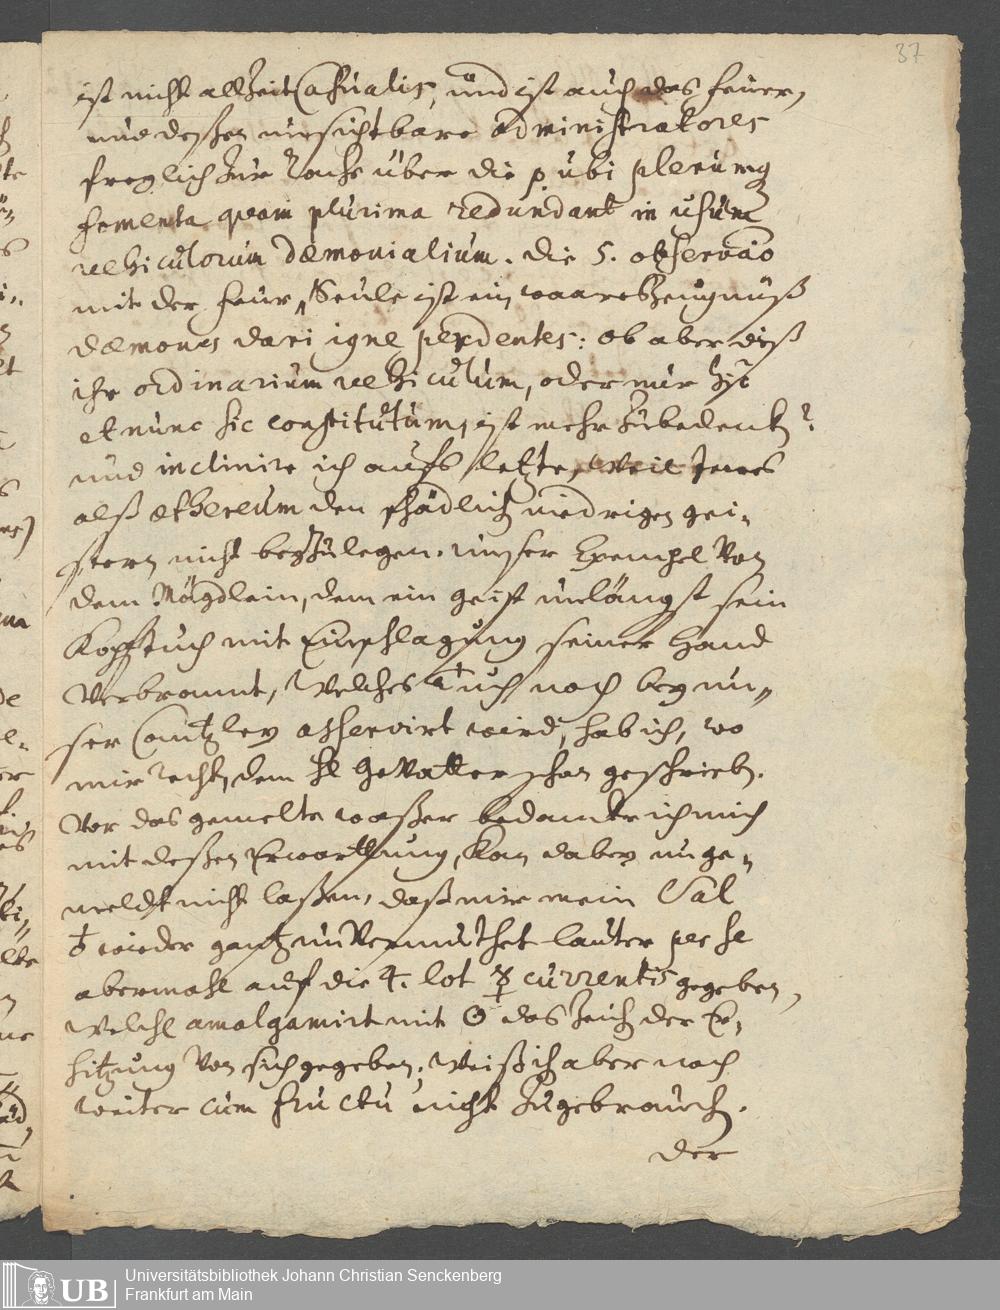 37
ist nicht allzeit Casualis, und ist auch das feuer,
und deßen unsichtbare administratores
freylich zur Rache über die p. ubi plerumq
fomenta quam plurima redundant in usum
vehiculorum dæmonialium. die 5. observão
mit der feur Seule ist ein waares Zeugnüß
dæmones dari igne perdentes: ob aber diß
ihr ordinarium vehiculum, oder nur hic
et nunc sic constitutum, ist mehr zubedenken?
und inclinire ich aufs letzte, weil Jenes
alß æthereum den schädlich niedrigen gei-
stern nicht beyzulegen. unser Exempel von
dem Mägdlein, dem ein geist unlängst sein
Kopftuch mit Einschlagung seiner Hand
verbrannt, welches Tuch noch bey un-
ser Cantzley asservirt wird, hab ich, wo
mir recht, dem H Gevatter schon geschrieben.
Vor das gemelte waßer bedancke ich mich
mit deßen Erwarttung, kan dabey unge-
meldt nicht laßen, daß mir mein Sal
♁ wieder gantz unvermuthet lauter per se
abermahl auf die 4. lot ☿ currentis gegeben,
welche amalgamirt mit ☉ das Zeichen der Er-
hitzung von sich gegeben, weiß ich aber noch
weiter cum fructu nicht zugebrauchen.
der
UB
Universitätsbibliothek Johann Christian Senckenberg
Frankfurt am Main